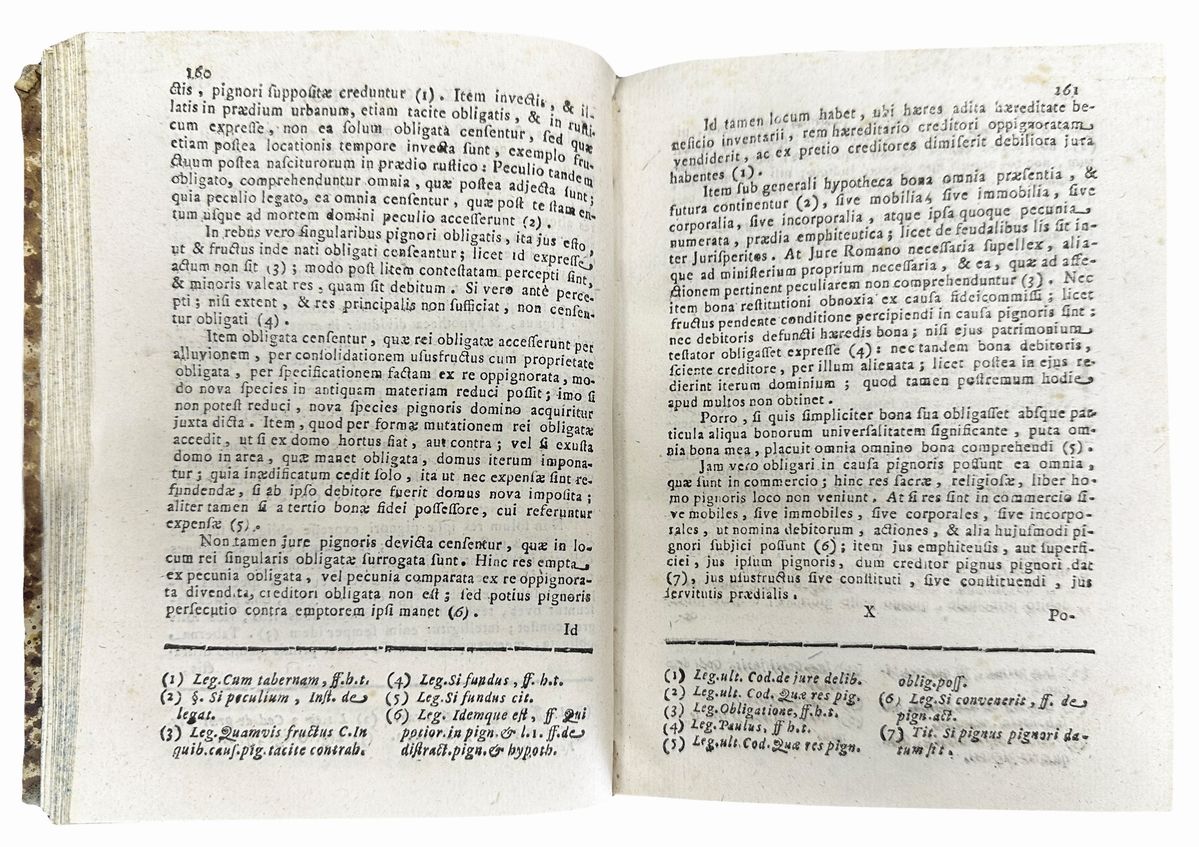 160
ctis, pignori suppositæ creduntur (1). Item invectis, & il-
latis in prædium urbanum, etiam tacite obligatis, & in rusti-
cum expresse, non ea solum obligata censentur, sed quæ
etiam postea locationis tempore invecta sunt, exemplo fru-
ctuum postea nasciturorum in prædio rustico: Peculio tandem
obligato, comprehenduntur omnia, quæ postea adjecta sunt;
quia peculio legato, ea omnia censentur, quæ post testamen-
tum usque ad mortem domini peculio accesserunt (2).
In rebus vero singularibus pignori obligatis, ita jus esto,
ut & fructus inde nati obligati censeantur; licet id expresse
actum non sit (3); modo post litem contestatam percepti sint,
& minoris valeat res, quam sit debitum. Si vero antè perce-
pti; nisi extent, & res principalis non sufficiat, non censen-
tur obligati (4).
Item obligata censentur, quæ rei obligatæ accesserunt per
alluvionem, per consolidationem ususfructus cum proprietate
obligata, per specificationem factam ex re oppignorata, mo-
do nova species in antiquam materiam reduci possit; imo si
non potest reduci, nova species pignoris domino acquiritur
juxta dicta. Item, quod per formæ mutationem rei obligatæ
accedit, ut si ex domo hortus fiat, aut contra; vel si exusta
domo in area, quæ manet obligata, domus iterum impona-
tur; quia inædificatum cedit solo, ita ut nec expensæ sint re-
fundendæ, si ab ipso debitore fuerit domus nova imposita;
aliter tamen si a tertio bonæ fidei possessore, cui referuntur
expensæ (5).
Non tamen jure pignoris devicta censentur, quæ in lo-
cum rei singularis obligatæ surrogata sunt. Hinc res empta
ex pecunia obligata, vel pecunia comparata ex re oppignora-
ta divendita, creditori obligata non est; sed potius pignoris
persecutio contra emptorem ipsi manet (6).
Id
(1) Leg. Cum tabernam, ff. h. t.
(2) §. Si peculium, Inst. de
legat.
(3) Leg. Quamvis fructus C. In
quib. caus. pig. tacite contrab.
(4) Leg. Si fundus, ff. h. t.
(5) Leg. Si fundus cit.
(6) Leg. Idemque est, ff. Qui
potior. in pign. & l. 1. ff. de
distract. pign. & hypoth.
161
Id tamen locum habet, ubi hæres adita hæreditate be-
neficio inventarii, rem hæreditario creditori oppignoratam
vendiderit, ac ex pretio creditores dimiserit debiliora jura
habentes (1).
Item sub generali hypotheca bona omnia præsentia, &
futura continentur (2), sive mobilia, sive immobilia, sive
corporalia, sive incorporalia, atque ipsa quoque pecunia
numerata, prædia emphiteutica; licet de feudalibus lis sit in-
ter Jurisperitos. At Jure Romano necessaria supellex, alia-
que ad ministerium proprium necessaria, & ea, quæ ad affe-
ctionem pertinent peculiarem non comprehenduntur (3). Nec
item bona restitutioni obnoxia ex causa fideicommissi; licet
fructus pendente conditione percipiendi in causa pignoris sint;
nec debitoris defuncti hæredis bona; nisi ejus patrimonium
testator obligasset expresse (4): nec tandem bona debitoris,
sciente creditore, per illum alienata; licet postea in ejus re-
dierint iterum dominium; quod tamen postremum hodie
apud multos non obtinet.
Porro, si quis simpliciter bona sua obligasset absque par-
ticula aliqua bonorum universalitatem significante, puta om-
nia bona mea, placuit omnia omnino bona comprehendi (5).
Jam vero obligari in causa pignoris possunt ea omnia,
quæ sunt in commercio; hinc res sacræ, religiosæ, liber ho-
mo pignoris loco non veniunt. At si res sint in commercio si-
ve mobiles, sive immobiles, sive corporales, sive incorpo-
rales, ut nomina debitorum, actiones, & alia hujusmodi pi-
gnori subjici possunt (6); item jus emphiteusis, aut superfi-
ciei, jus ipsum pignoris, dum creditor pignus pignori dat
(7), jus ususfructus sive constituti, sive constituendi, jus
servitutis prædialis.
X Po-
(1) Leg. ult. Cod. de jure delib.
(2) Leg. ult. Cod. Quæ res pig.
(3) Leg. Obligatione, ff. h. t.
(4) Leg. Paulus, ff h. t.
(5) Leg. ult. Cod. Quæ res pign.
oblig. poss.
(6) Leg. Si conveneris, ff. de
pign. act.
(7) Tit. Si pignus pignori da-
tum sit.